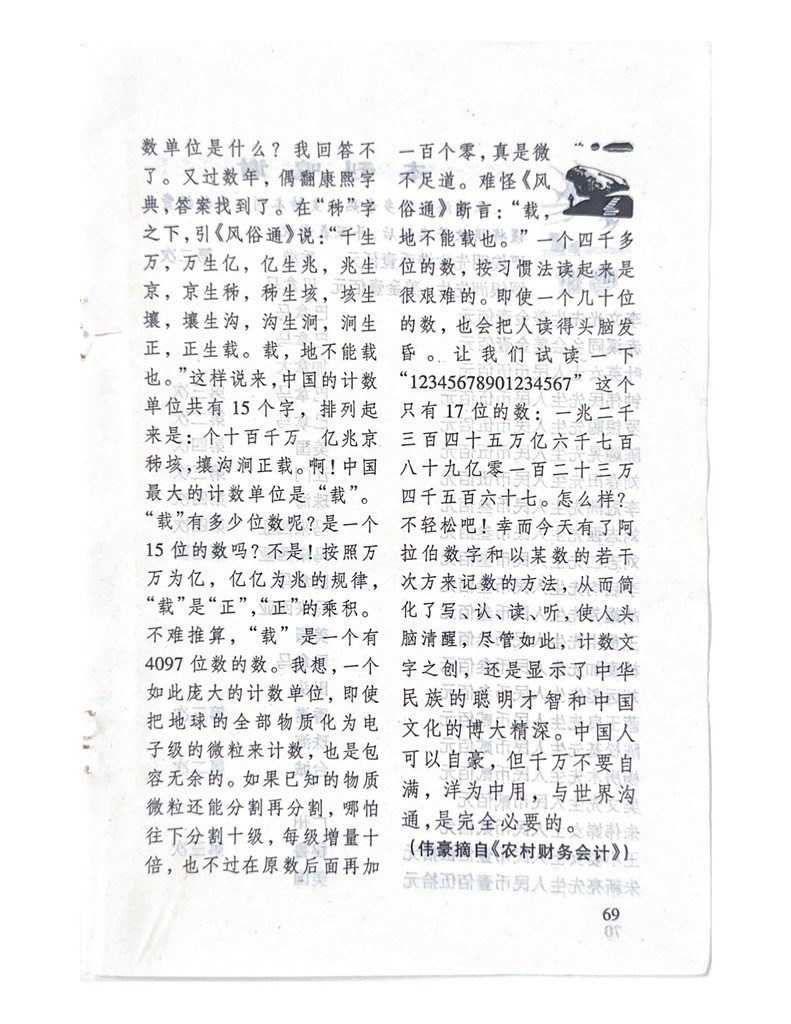 数单位是什么？我回答不
了。又过数年，偶翻康熙字
典，答案找到了。在“秭”字
之下，引《风俗通》说：“千生
万，万生亿，亿生兆，兆生
京，京生秭，秭生垓，垓生
壤，壤生沟，沟生涧，涧生
正，正生载。载，地不能载
也。”这样说来，中国的计数
单位共有 15 个字，排列起
来是：个十百千万　亿兆京
秭垓，壤沟涧正载。啊！中国
最大的计数单位是“载”。
“载”有多少位数呢？是一个
15 位的数吗？不是！按照万
万为亿，亿亿为兆的规律，
“载”是“正”，“正”的乘积。
不难推算，“载”是一个有
4097 位数的数。我想，一个
如此庞大的计数单位，即使
把地球的全部物质化为电
子级的微粒来计数，也是包
容无余的。如果已知的物质
微粒还能分割再分割，哪怕
往下分割十级，每级增量十
倍，也不过在原数后面再加
一百个零，真是微
不足道。难怪《风
俗通》断言：“载，
地不能载也。”一个四千多
位的数，按习惯法读起来是
很艰难的。即使一个几十位
的数，也会把人读得头脑发
昏。让我们试读一下
“12345678901234567”这个
只有 17 位的数：一兆二千
三百四十五万亿六千七百
八十九亿零一百二十三万
四千五百六十七。怎么样？
不轻松吧！幸而今天有了阿
拉伯数字和以某数的若干
次方来记数的方法，从而简
化了写、认、读、听，使人头
脑清醒，尽管如此，计数文
字之创，还是显示了中华
民族的聪明才智和中国
文化的博大精深。中国人
可以自豪，但千万不要自
满，洋为中用，与世界沟
通，是完全必要的。
（伟豪摘自《农村财务会计》）
69